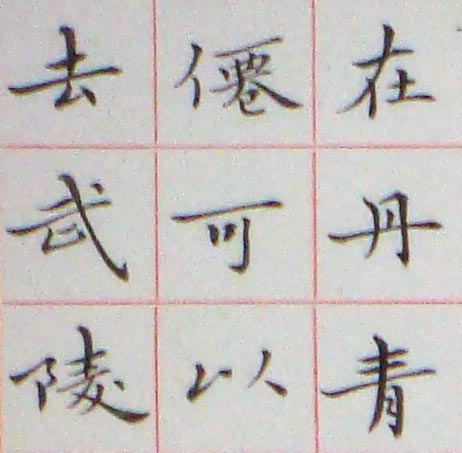 在丹青
僊可以
去武陵